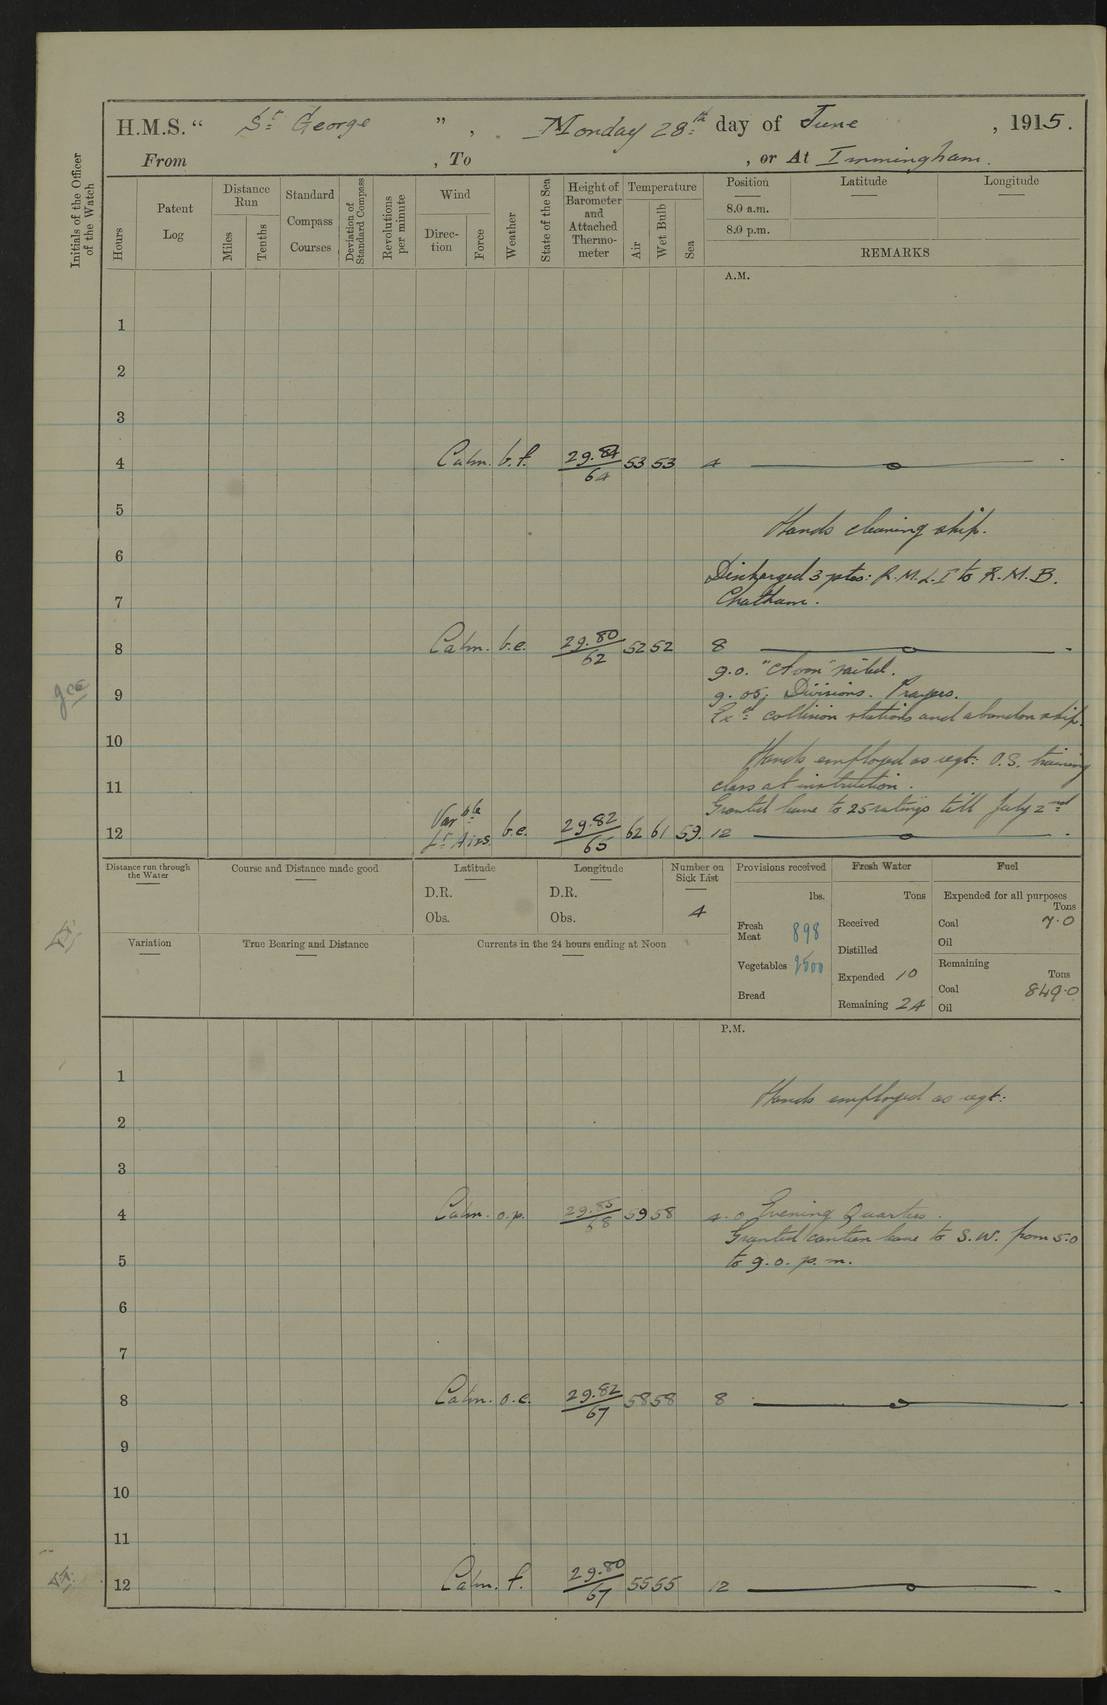 H.M.S. “ St George ” , Monday 28th day of June , 1915.
From , To , or At Immingham.
Initials of the Officer of the Watch
Hours
Patent Log
Distance Run
Miles
Tenths
Standard Compass Courses
Deviation of Standard Compass
Revolutions per minute
Wind
Direction
Force
Weather
State of the Sea
Height of Barometer and Attached Thermometer
Temperature
Air
Wet Bulb
Sea
Position
8.0 a.m.
8.0 p.m.
Latitude
Longitude
REMARKS
A.M.
1
2
3
4 Calm. b.f. 29.84/64 53 53 4
5
Hands cleaning ship.
6
Discharged 3 ptes: R.M.L.I to R.M.B.
7 Chatham.
8 Calm. b.c. 29.80/62 52 52 8
9.0. sailed.
9 9.05. Divisions. Prayers.
Exd collision stations and abandon ship.
10
Hands employed as reqt: O.S. training
11 class at institution.
Granted leave to 25 ratings till July 2nd
12 Varble Lt Airs. b.c. 29.82/65 62 61 59. 12
Distance run through the Water
Course and Distance made good
Latitude
D.R.
Obs.
Longitude
D.R.
Obs.
Number on Sick List
4
Variation
True Bearing and Distance
Currents in the 24 hours ending at Noon
Provisions received
lbs.
Fresh Meat 898
Vegetables 2500
Bread
Fresh Water
Tons
Received
Distilled
Expended 10
Remaining 24
Fuel
Expended for all purposes
Tons
Coal 7.0
Oil
Remaining
Tons
Coal 849.0
Oil
P.M.
1
Hands employed as reqt:
2
3
4 Calm. o.p. 29.85/68 59 58 4.0 Evening Quarters.
Granted canteen leave to S.W. from 5.0
5 to 9.0. p.m.
6
7
8 Calm. o.c. 29.82/67 58 58 8
9
10
11
12 Calm. f. 29.80/67 55 55 12